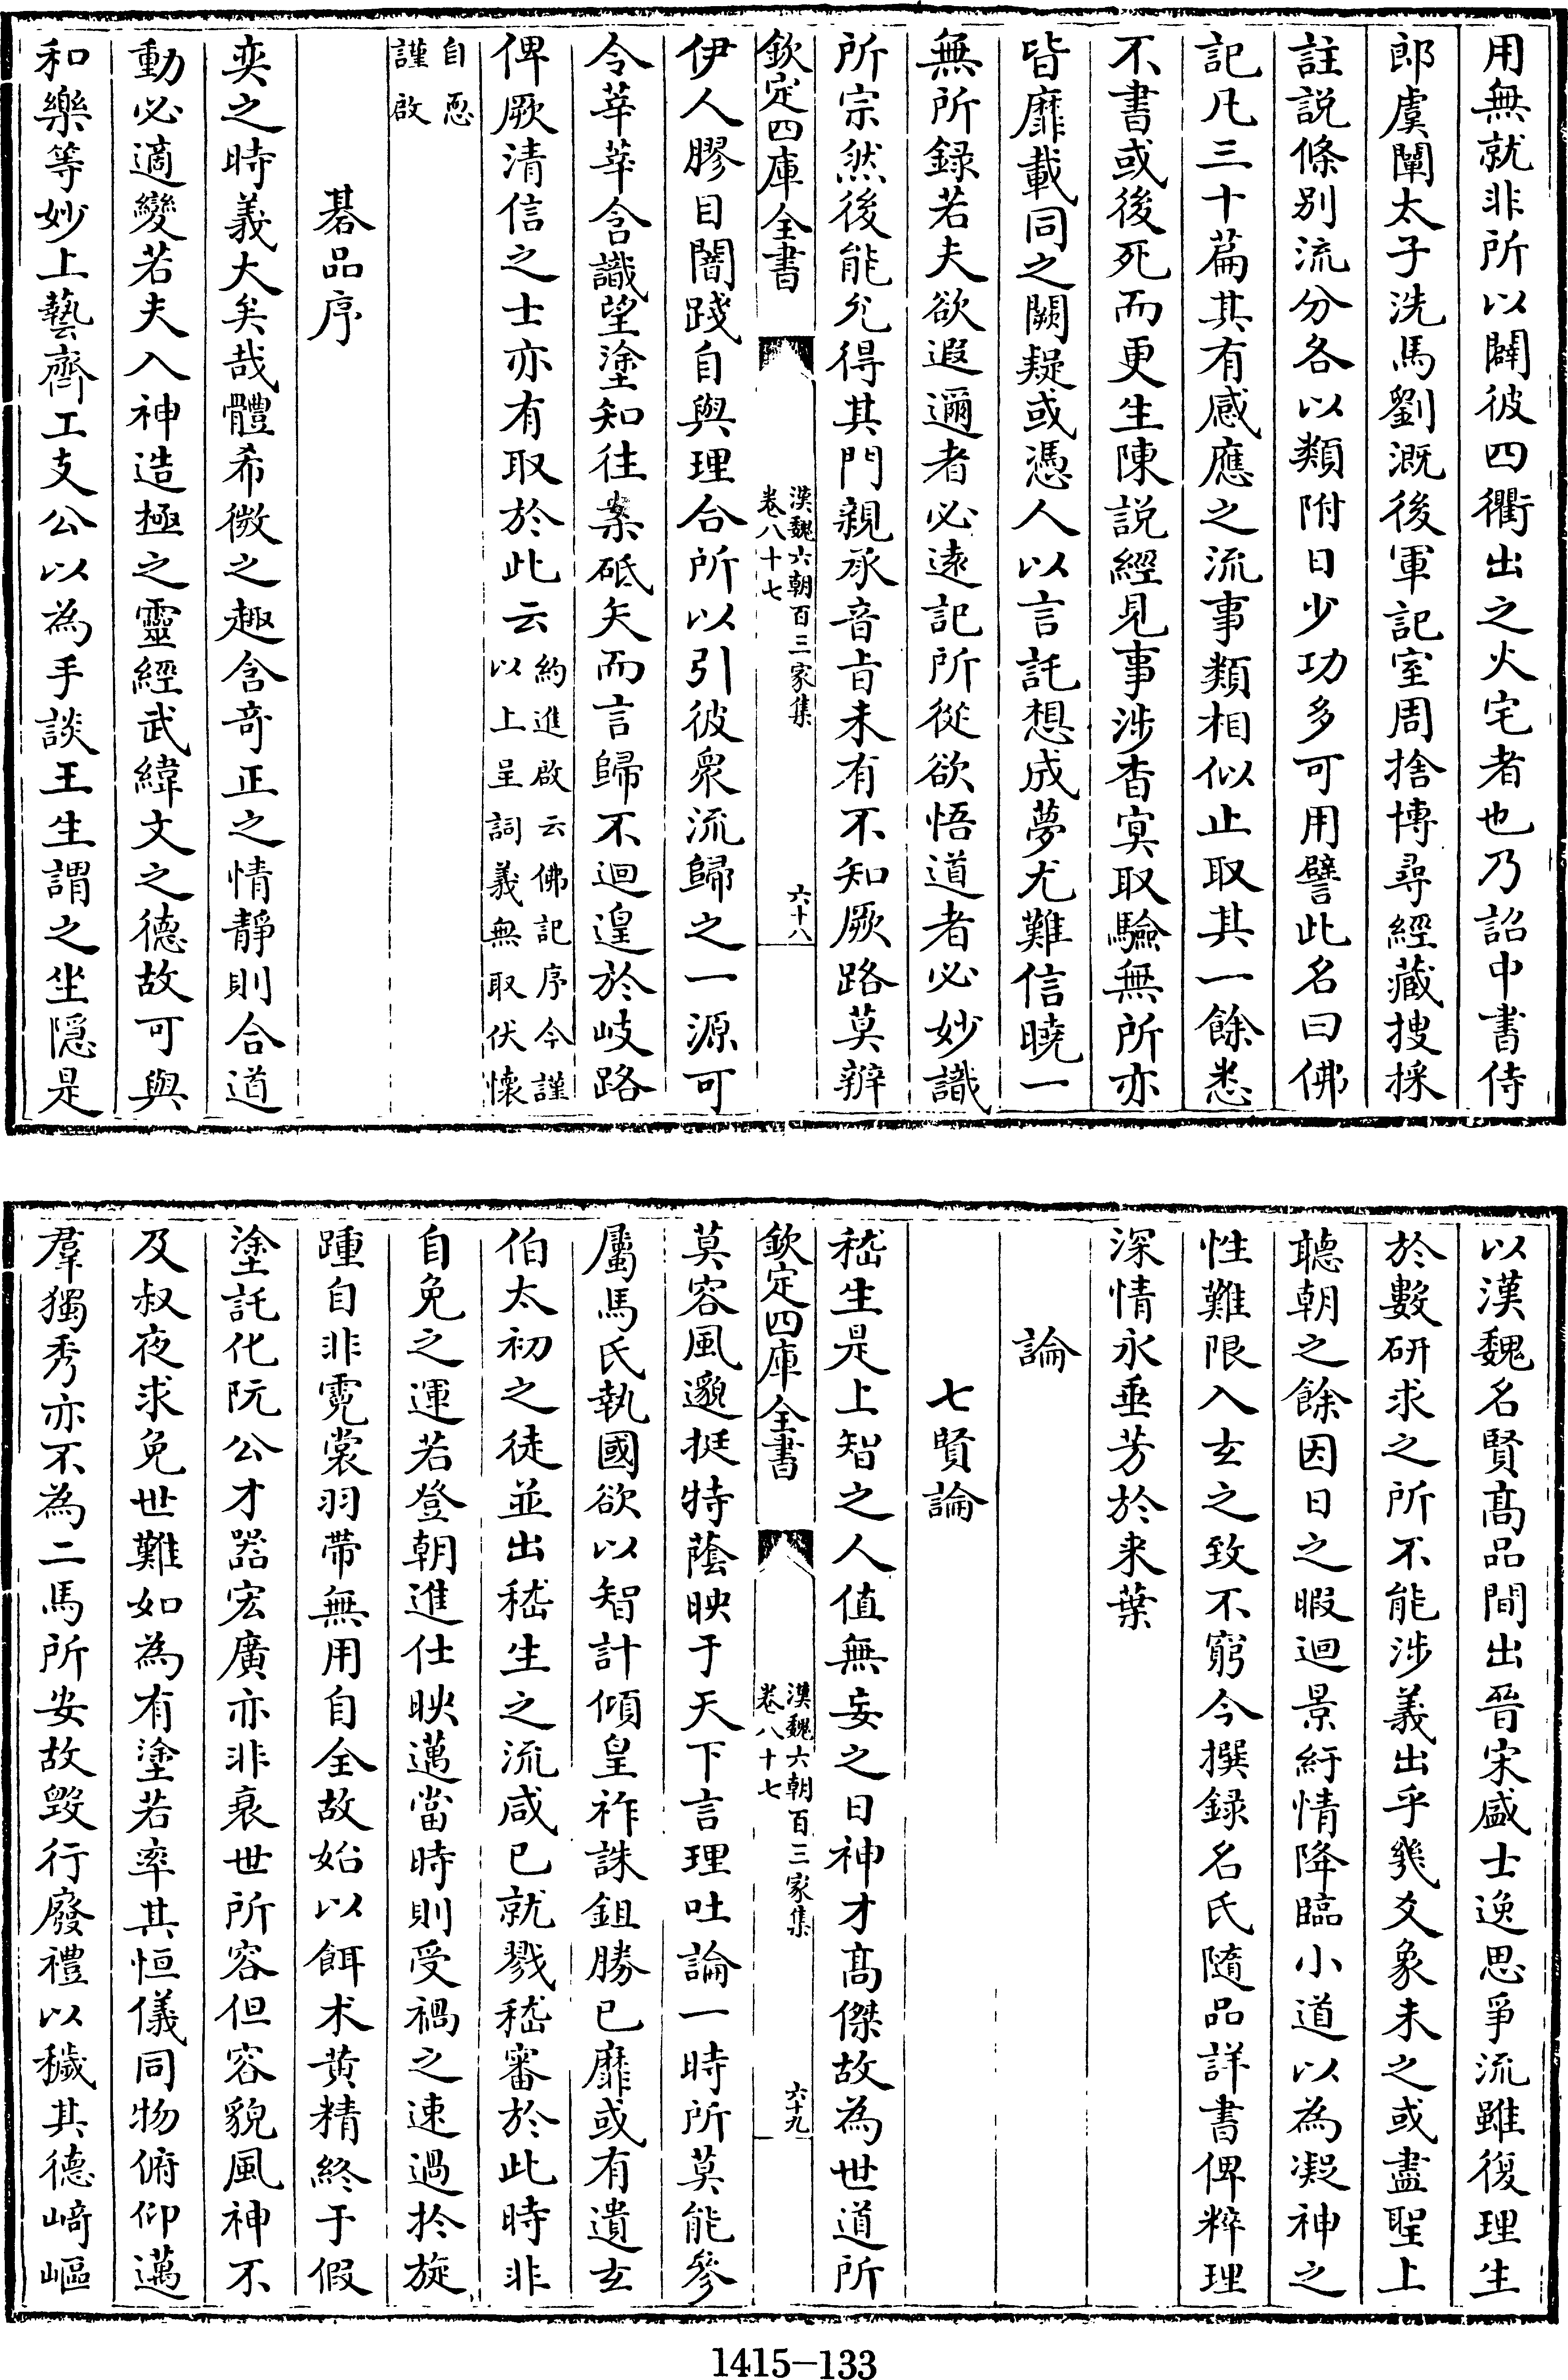 用無就非所以闢彼四衢出之火宅者也乃詔中書侍
郎虞闡太子洗馬劉溉後軍記室周捨博尋經藏搜採
註説條别流分各以類附日少功多可用譬此名曰佛
記凡三十篇其有感應之流事類相似止取其一餘悉
不書或後死而更生陳説經見事涉杳㝠取驗無所亦
皆靡載同之闕疑或憑人以言託想成夢尤難信曉一
無所録若夫欲遐邇者必遠記所從欲悟道者必妙識
所宗然後能允得其門親承音㫖未有不知厥路莫辨
欽定四庫全書
漢魏六朝百三家集
卷八十七
六十八
伊人膠目闇踐自與理合所以引彼衆流歸之一源可
令莘莘含識望塗知往案砥矢而言歸不迴遑於岐路
俾厥清信之士亦有取於此云
約進啟云佛記序今謹
以上呈詞義無取伏懷
自恧
謹啟
碁品序
奕之時義大矣哉體希微之趣含奇正之情靜則合道
動必適變若夫入神造極之靈經武緯文之德故可與
和樂等妙上藝齊工支公以為手談王生謂之坐隠是
以漢魏名賢髙品間出晉宋盛士逸思爭流雖復理生
於數研求之所不能涉義出乎幾爻象未之或盡聖上
聽朝之餘因日之暇迴景紆情降臨小道以為凝神之
性難限入玄之致不窮今撰録名氏隨品詳書俾粹理
深情永垂芳於来葉
論
七賢論
嵇生是上智之人值無妄之日神才髙傑故為世道所
欽定四庫全書
漢魏六朝百三家集
卷八十七
六十九
莫容風邈挺特蔭映于天下言理吐論一時所莫能參
屬馬氏執國欲以智計傾皇祚誅鉏勝已靡或有遺玄
伯太初之徒並出嵇生之流咸已就戮嵇審於此時非
自免之運若登朝進仕映邁當時則受禍之速過扵旋
踵自非霓裳羽带無用自全故始以餌术黄精終于假
塗託化阮公才器宏廣亦非衰世所容但容貌風神不
及叔夜求免世難如為有塗若率其恒儀同物俯仰邁
羣獨秀亦不為二馬所安故毀行廢禮以穢其德﨑嶇
1415—133